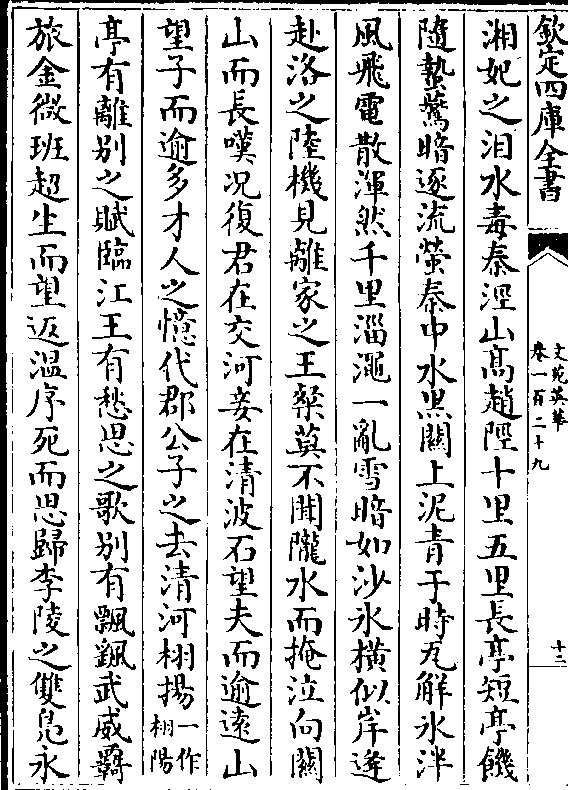 欽定四庫全書
文苑英華
卷一百二十九
十二
湘妃之泪水毒秦涇山髙趙陘十里五里長亭短亭饑
隨蟄鷰暗逐流螢秦中水黒關上泥青于時瓦解冰泮
風飛電散渾然千里淄澠一亂雪暗如沙氷橫似岸逄
赴洛之陸機見離家之王粲莫不聞隴水而掩泣向關
山而長嘆况復君在交河妾在清波石望夫而逾逺山
望子而逾多才人之憶代郡公子之去清河栩揚一作栩陽
亭有離别之賦臨江王有愁思之歌别有飄颻武威羇
旅金微班超生而望返温序死而思歸李陵之雙鳬永